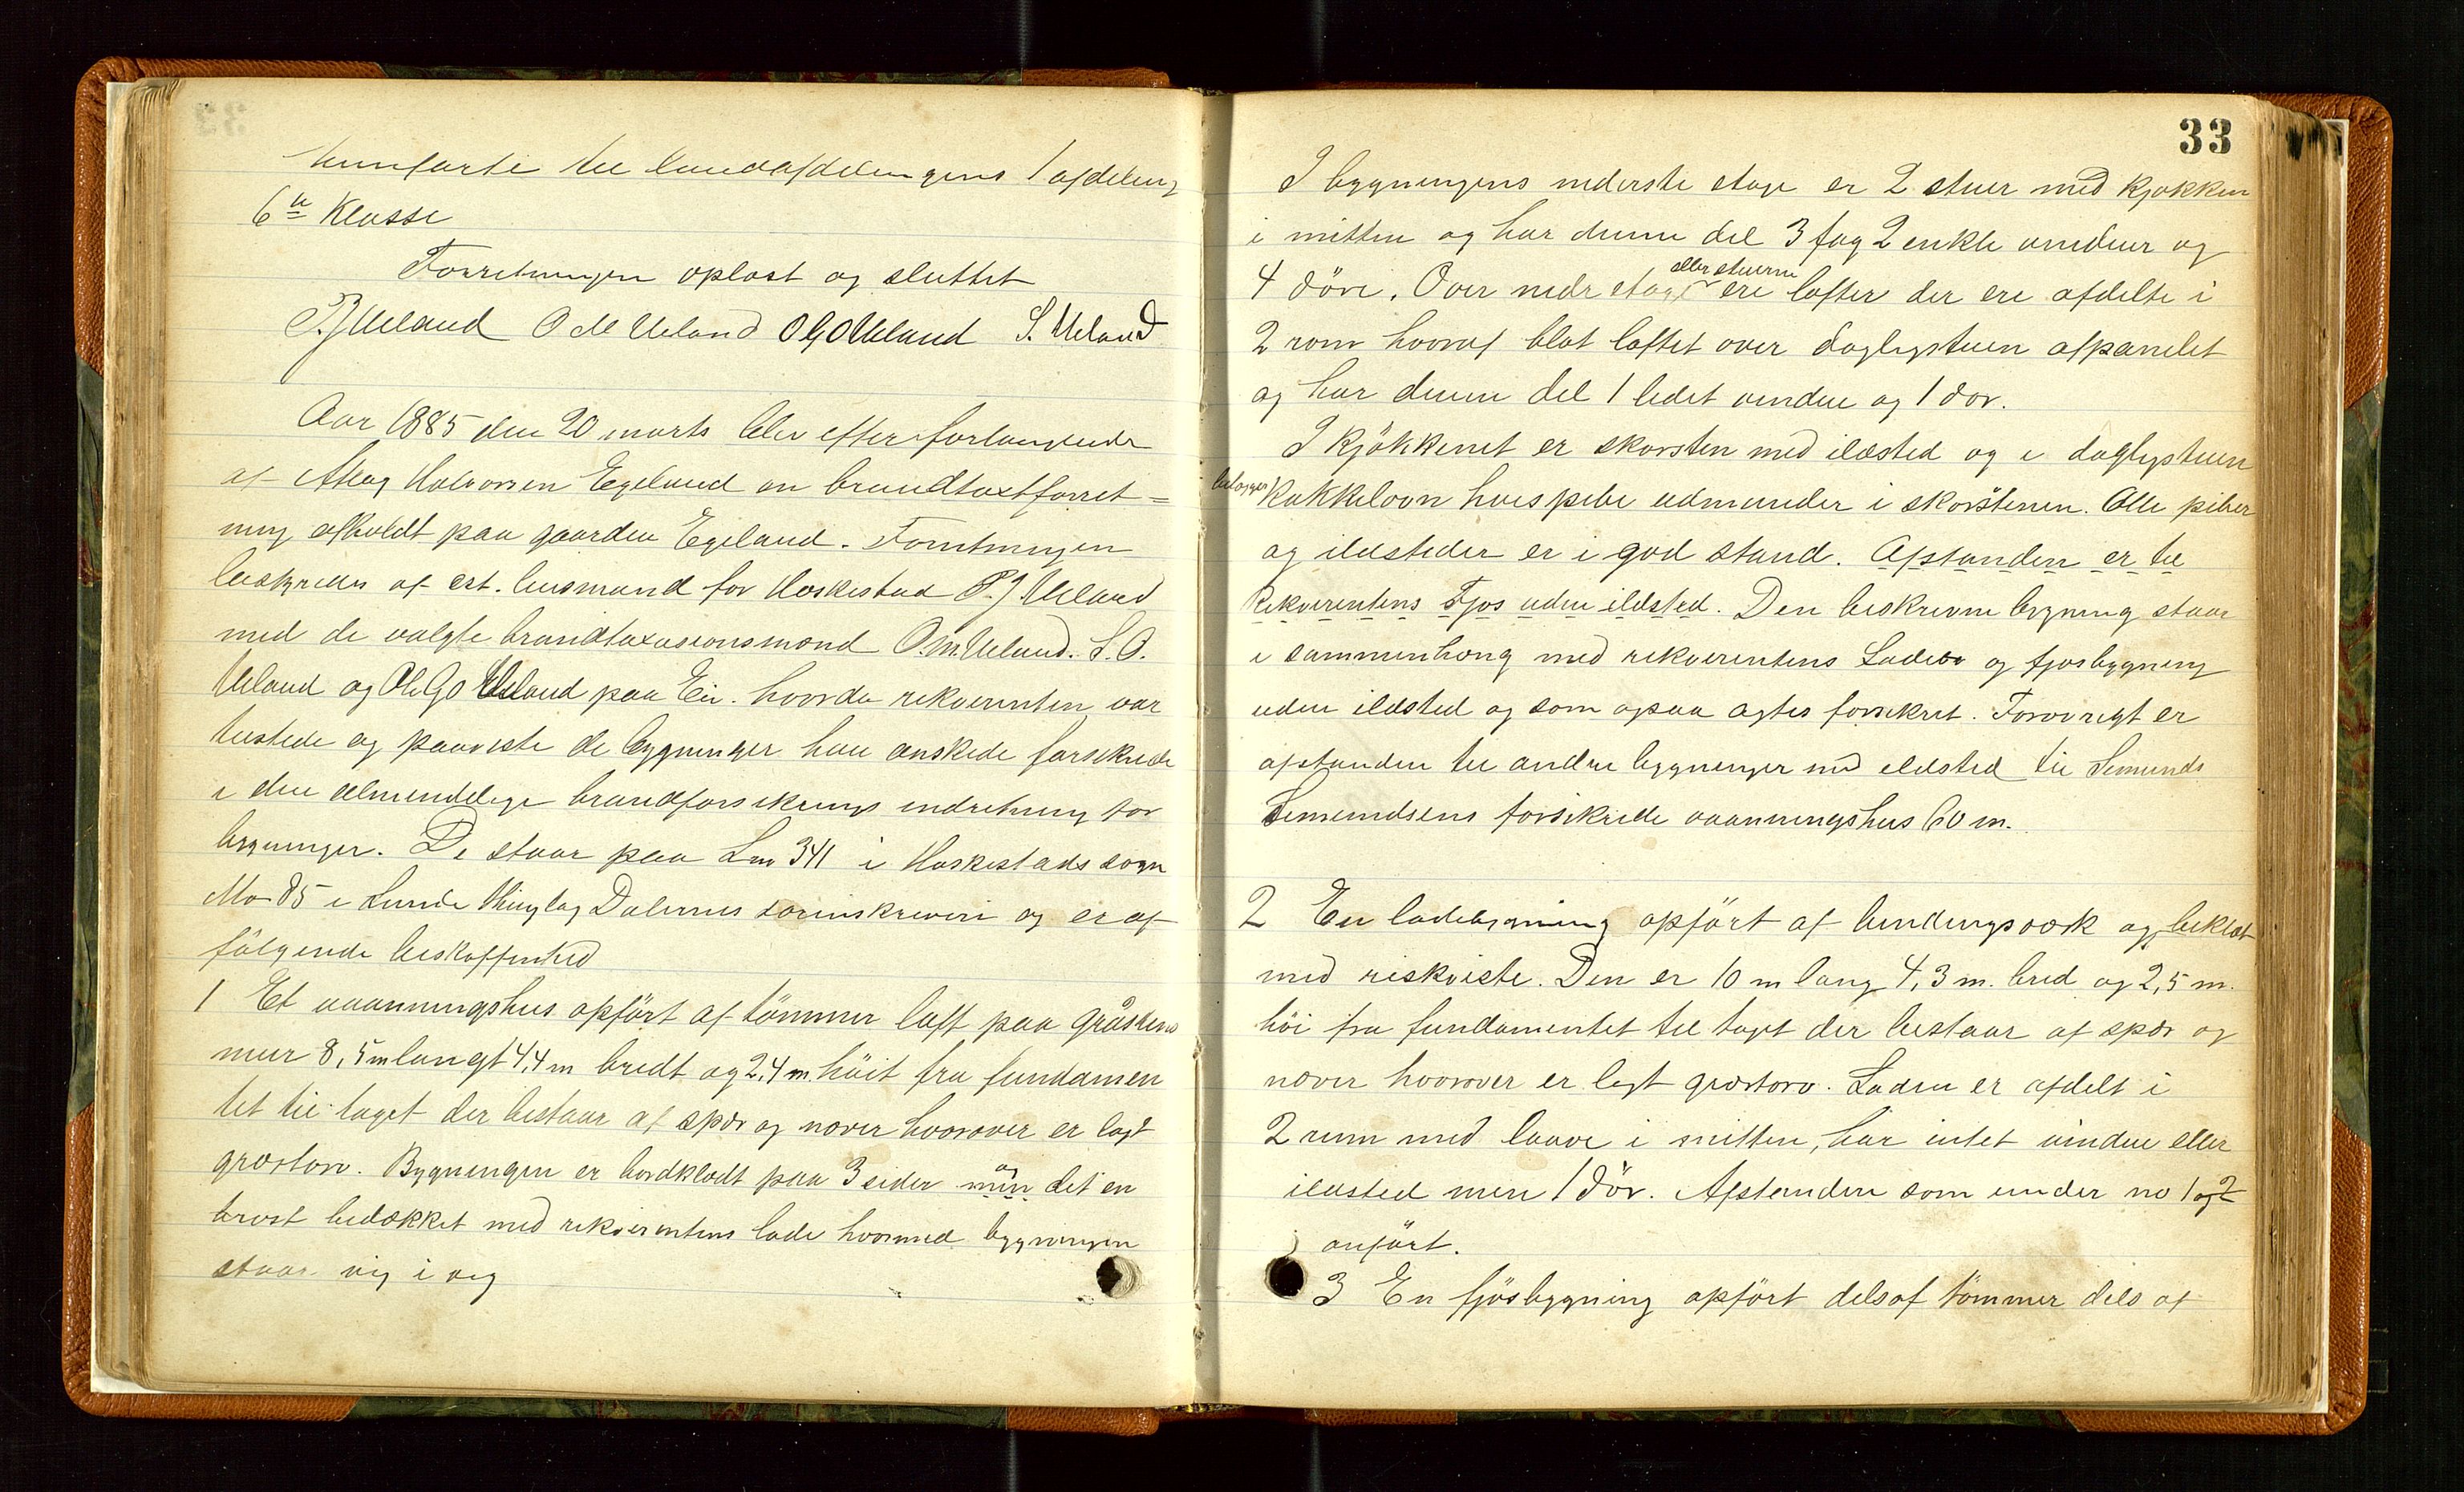 henførte til landafdelingens 1 afdeling
6te Klasse
Forretningen oplæst og sluttet
P.J Ueland O M Ueland O G O Ueland S. Ueland
Aar 1885 den 20 marts blev efter forlangende
af Halvorsen Egeland en brandtaxtforret=
ning afholdt paa gaarden Egeland. Forretningen
beskyredes af est. lensmand for Heskestad P.J Ueland
med de valgte brandtaxasionsmænd O.M. Ueland. S.O.
Ueland og Ole G O Ueland paa Eie. hvorda rekverenten var
tilstede og paaviste de bygninger han ønskede forsikrede
i den almindelige brandforsikrings indretning for
bygninger. De staar paa Lno 341 i Heskestads sogn
Mno 85 i Lunde thinglag Dalernes sorinskriveri og er af
følgende beskaffenhed
1 Et vaaningshus opført af tømmer laft paa gråstens
mur 8,5 m langt 4,4 m bredt og 2,4 m. höit fra fundamen
tet til taget der bestaar af spær og næver hvorover er lagt
græstorv. Bygningen er bordklædt paa 3 sider men og det en
brøst bedækket med rekverentens lade hvormed bygningen
staar væg i væg
33
I bygningens nederste etage er 2 stuer med kjøkken
i mitten og har denne del 3 fag 2 enkle vinduer og
4 döre. Over nedr etage eller stuerne ere lofter der ere afdelte i
2 rom hvoraf blot loftet over dagligstuen afpanelet
og har denne del 1 ledet vindue og 1 dør.
I kjökkenet er skorsten med ildsted og i dagligstuen
kakkelovn hvis pibe udmunder i skorstenen. Alle piber
og ildsteder er i god stand. Afstanden er til
Rekverentens Fjos uden ildsted. Den beskrevne bygning staar
i sammenhæng med rekverentens Lade og fjosbygning
uden ildsted og som ogsaa agtes forsikret. Forøvrigt er
afstanden til andre bygninger med ildsted til Simunds
Simundsens forsikrede vaaningshus 60 m.
2 En ladebygning opført af bindingsværk og beklæt
med riskviste. Den er 10 m lang 4,3 m. bred og 2,5 m.
höi fra fundamentet til taget der bestaar af spær og
næver hvorover er lagt græstorv. Laden er afdelt i
2 rum med laave i mitten, har intet vindue eller
ildsted men 1 dör. Afstanden som under no 1 og 2
anført.
3 En fjøsbygning opført dels af tömmer dels af